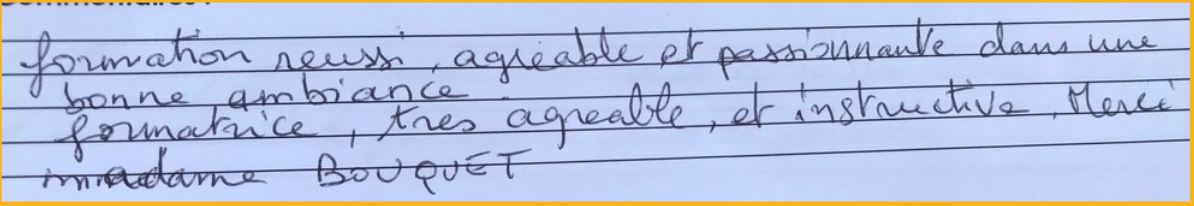 formation reussi, agréable et passionnante dans une
bonne ambiance
formatrice, tres agreable, et instructive, Merci
madame BOUQUET